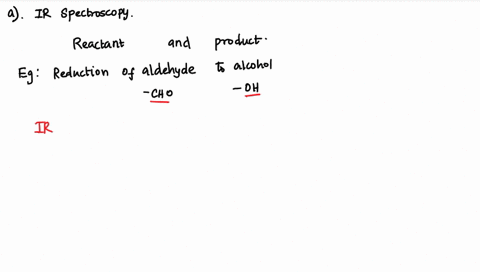 a). IR Spectroscopy.
Reactant and product.
Eg: Reduction of aldehyde to alcohol
-CHO -OH
IR